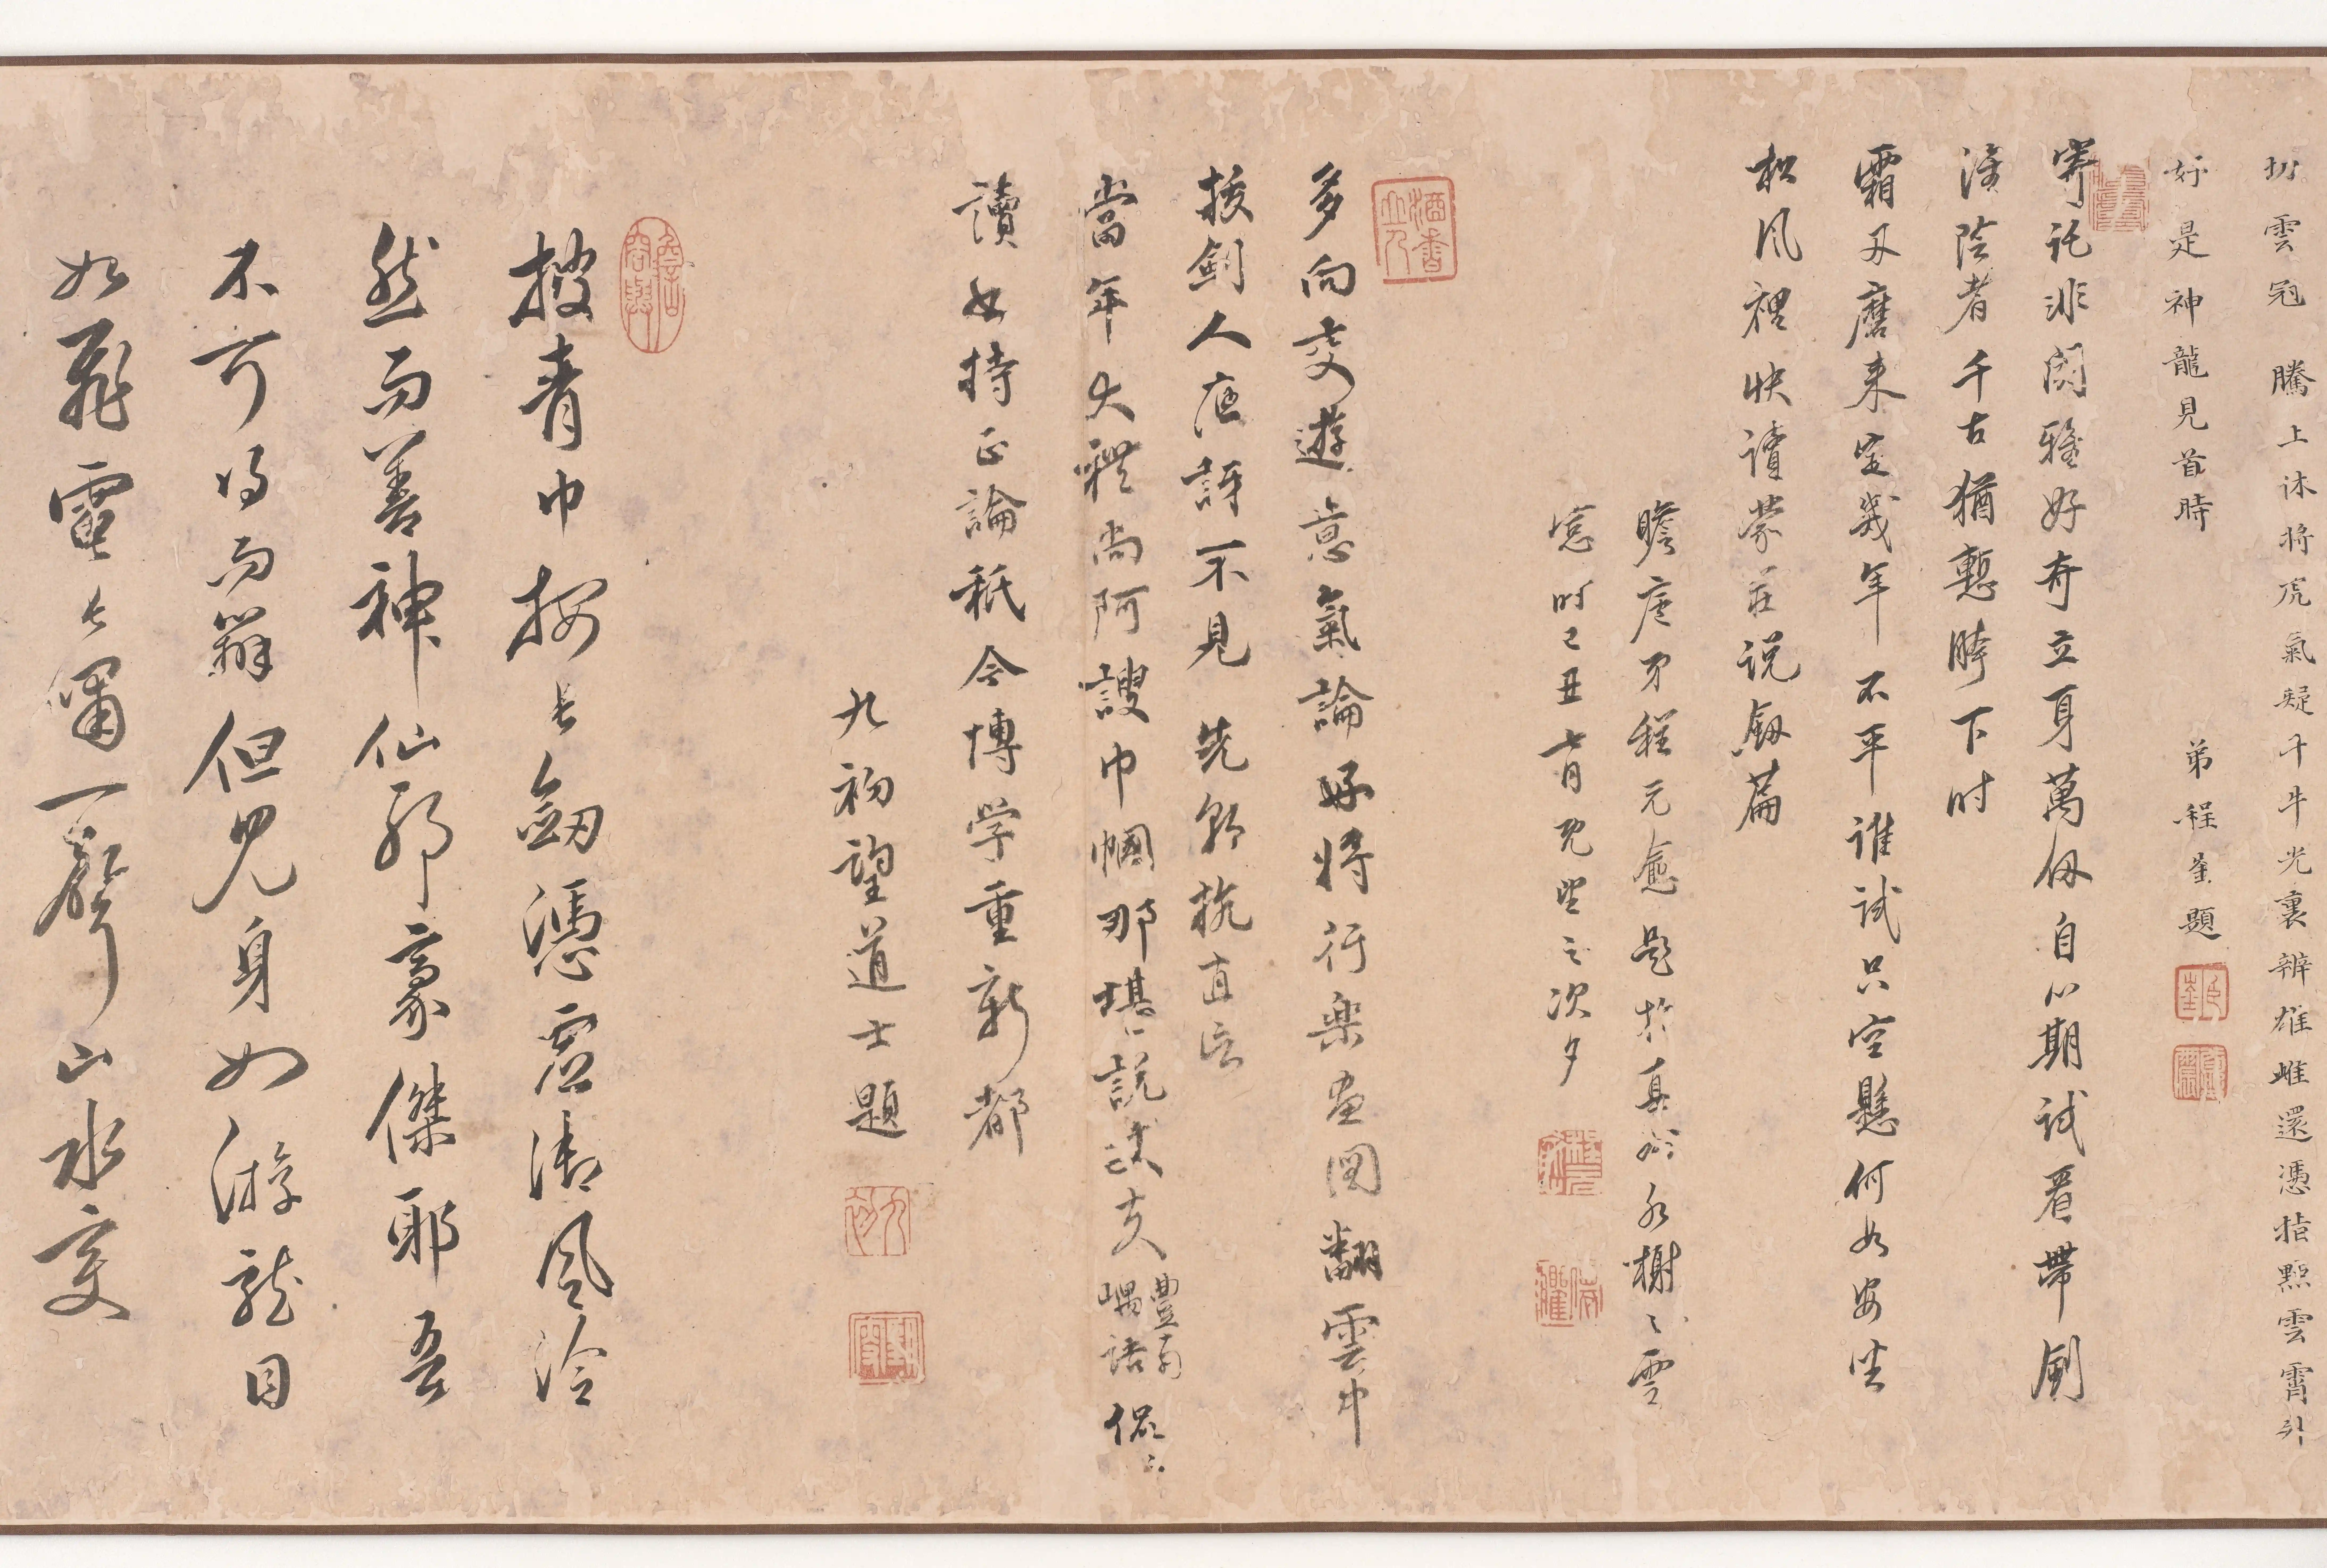 切雲冠騰上沐將虎氣疑干牛光裏辨雄雌還憑指點雲霄外
好是神龍見首時
弟程崟題
寄託非關雅好奇立身萬仞自心期試看帶劍
淮陰者千古猶慙胯下时
霜刃磨来定幾年不平谁試只空懸何如安坐
松风裡快讀蒙莊说劔篇
瞻庵弟程元愈题於真州水榭之雪
窓时己丑七月既望之次夕
多向交遊意氣論好將行樂画図翻雲中
按劍人應訝不見先朝抗直臣
當年大禮尚阿諛巾幗那堪説丈夫
豐南
嵎語侃々
讀好持正論秖今博学重新都
九初望道士題
披青巾按長劔憑虛御风泠
然而善神仙耶豪傑耶吾
不可得而辨但見身如游龍目
如飛電長嘯一聲山水变